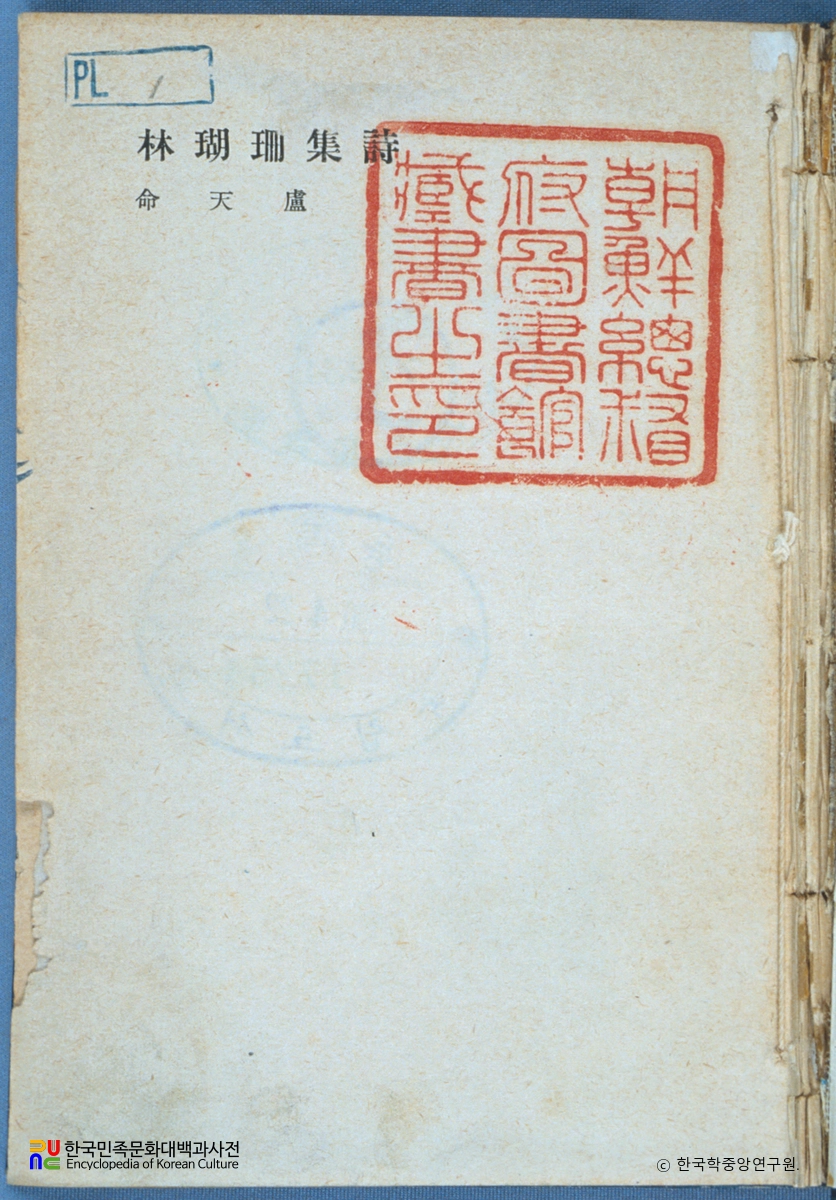 PL 1
詩集珊瑚林
盧天命
朝鮮總督
府圖書館
藏書之印
한국민족문화대백과사전
Encyclopedia of Korean Culture
© 한국학중앙연구원.